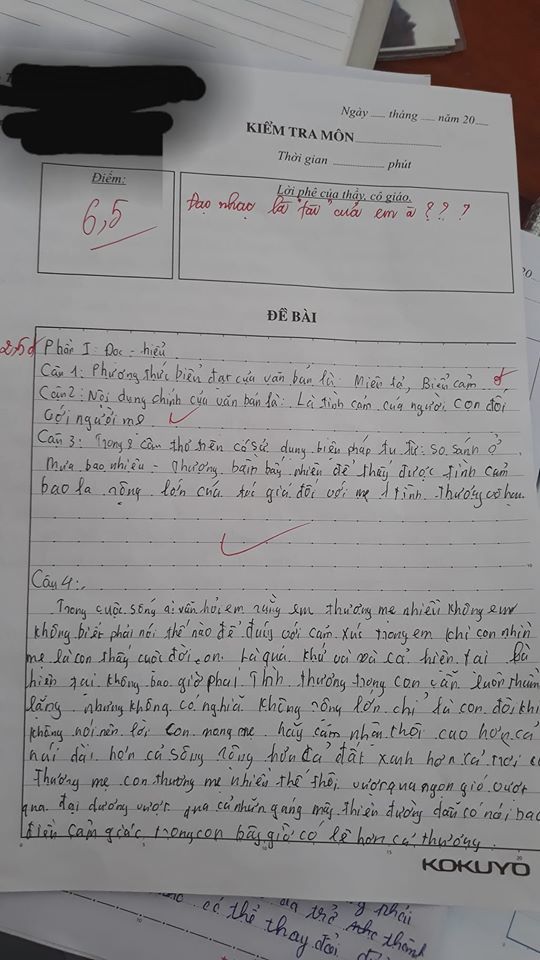 Ngày ___ tháng ___ năm 20 ___
KIỂM TRA MÔN
Thời gian phút
Điểm:
6,5
Lời phê của thầy, cô giáo.
Đạo nhạc là "tài" của em à ? ? ?
ĐỀ BÀI
2,5đ Phần I: Đọc - hiểu
Câu 1: Phương thức biểu đạt của văn bản là: Miêu tả, Biểu cảm
Câu 2: Nội dung chính của văn bản là: Là tình cảm của người con đối
với người mẹ
Câu 3: Trong 2 câu thơ trên có sử dụng biện pháp tu từ: so sánh ở
mưa bao nhiêu - Thương bầm bấy nhiêu để thấy được tình cảm
bao la rộng lớn của tác giả đối với mẹ 1 tình thương vô hạn
Câu 4:
Trong cuộc sống ai vẫn hỏi em rằng em thương mẹ nhiều không em
không biết phải nói thế nào để đúng với cảm xúc trong em khi con nhìn
mẹ là con thấy cuộc đời con. Là quá khứ và và cả hiện tại là
hiện tại không bao giờ phai. Tình thương trong con vẫn luôn thầm
lặng nhưng không có nghĩa không rộng lớn chỉ là con đôi khi
không nói nên lời con mong mẹ hãy cảm nhận thôi cao hơn cả
núi dài hơn cả sông rộng hơn cả đất xanh hơn cả trời
thương mẹ con thương mẹ nhiều thế thôi vượt qua ngọn gió vượt
qua đại dương vượt qua cả những gang mây thiên đường dẫu có nói bao
điều cảm giác trong con bây giờ có lẽ hơn cả thương.
KOKUYO
phải
trẻ thành
có thể thay đổi